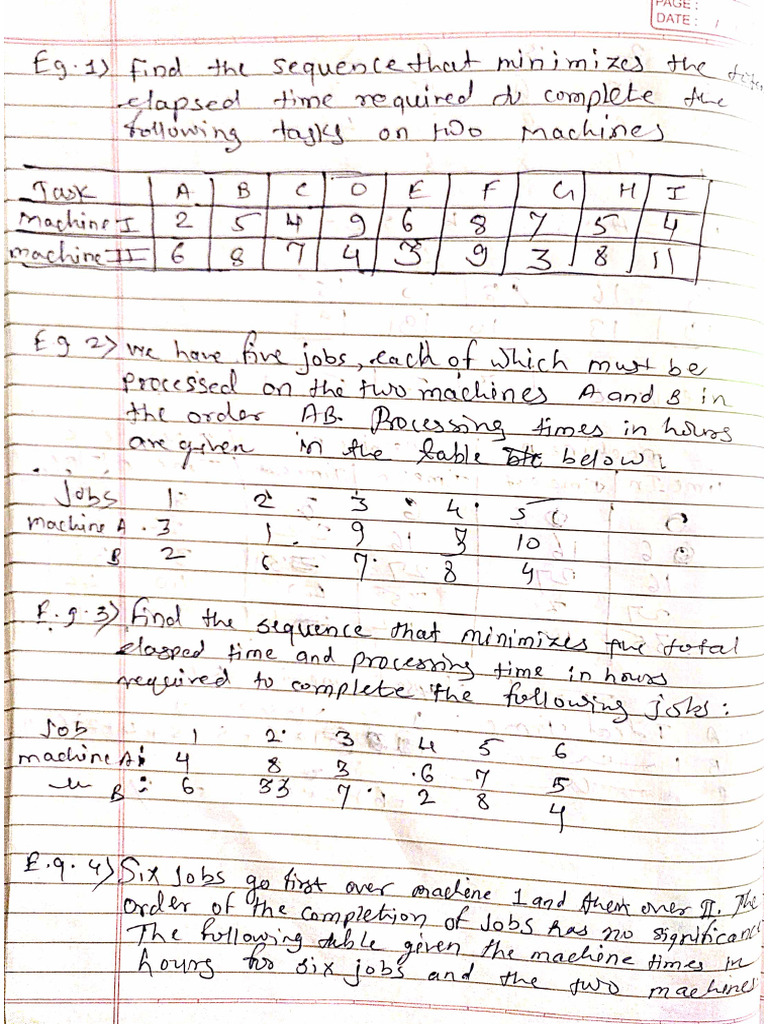 PAGE :
DATE : /
Eg. 1) Find the sequence that minimizes the
elapsed time required to complete the
following tasks on two machines
Task A B C D E F G H I
Machine I 2 5 4 9 6 8 7 5 4
machine II 6 8 7 4 3 9 3 8 11
Eg 2) we have five jobs, each of which must be
processed on the two machines A and B in
the order AB. Processing times in hours
are given in the table below.
Jobs 1 2 3 4 5
Machine A 3 1 9 3 10
B 2 6 7 8 4
E.g. 3) Find the sequence that minimizes the total
elasped time and processing time in hours
required to complete the following jobs :
Job 1 2 3 4 5 6
machine A 4 8 3 6 7 5
B 6 33 7 2 8 4
E.g. 4) Six jobs go first over machine I and then over II. The
order of the completion of Jobs has no significanc
The following table given the machine times in
hours for six jobs and the two machines